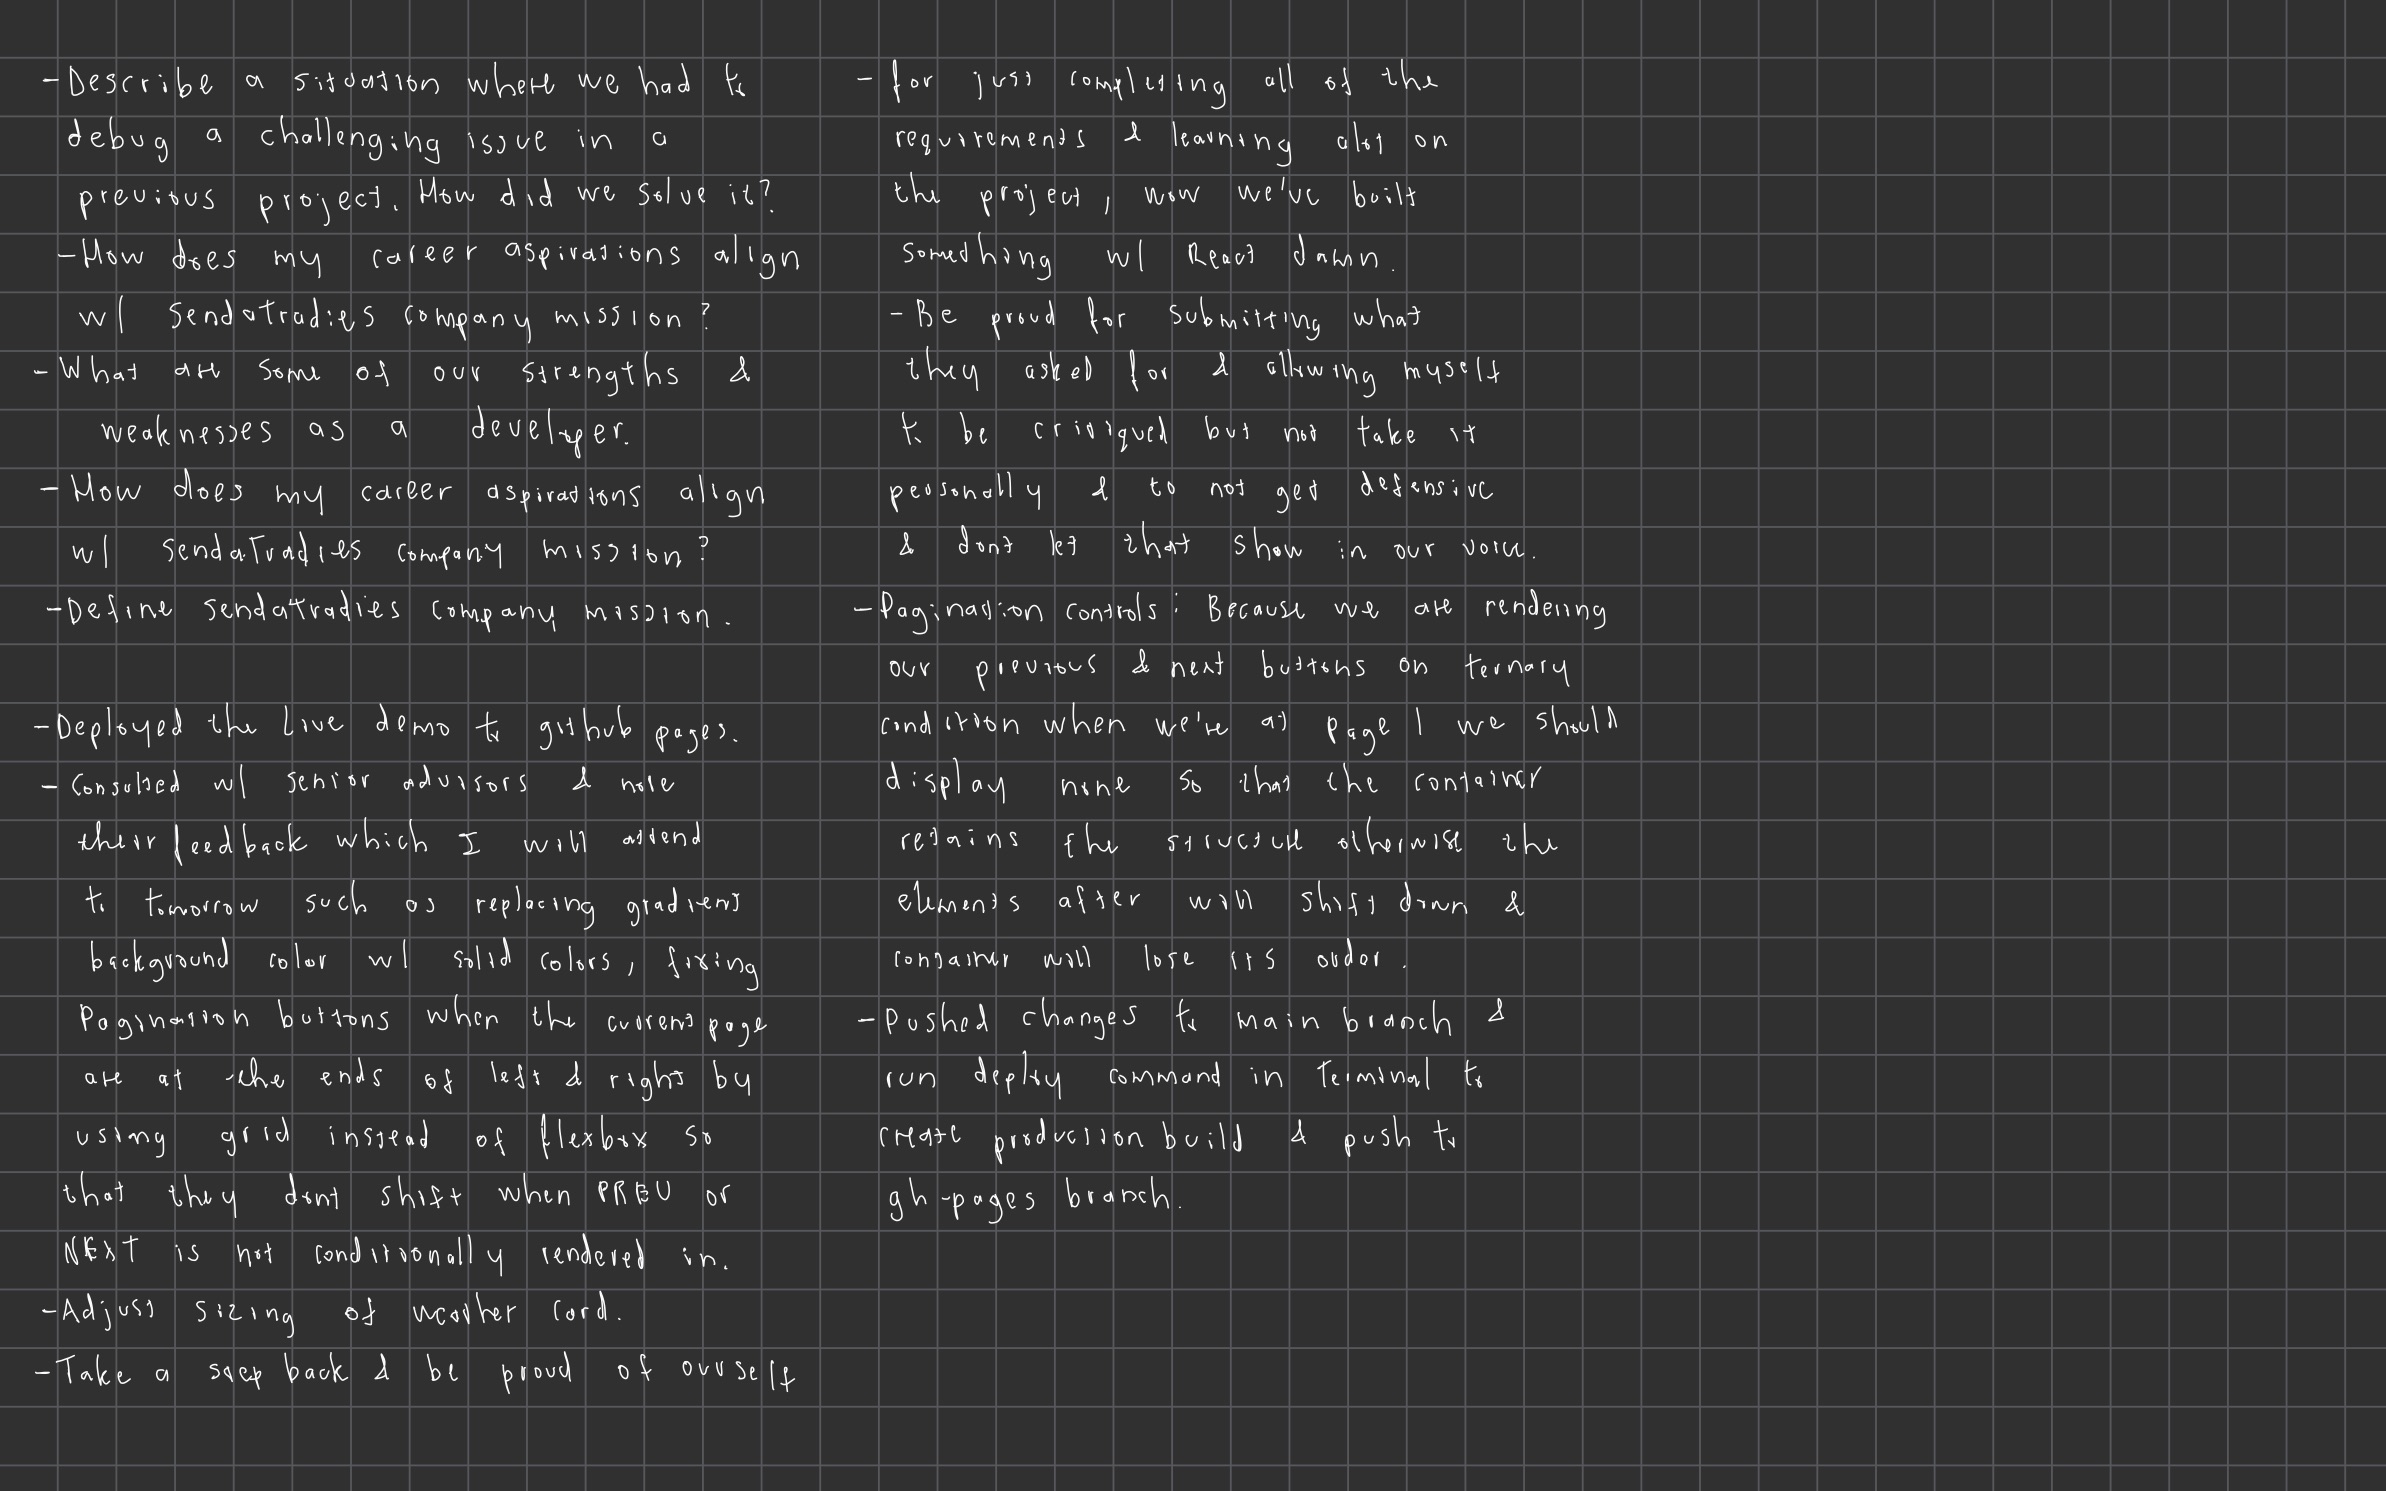 - Describe a situation where we had to
debug a challenging issue in a
previous project. How did we solve it?
- How does my career aspirations align
w/ Sendatradies company mission?
- What are some of our strengths &
weaknesses as a developer.
- How does my career aspirations align
w/ SendaTradies company mission?
- Define sendatradies company mission.
- Deployed the live demo to github pages.
- Consulted w/ senior advisors & note
their feedback which I will attend
to tomorrow such as replacing gradient
background color w/ solid colors, fixing
Pagination buttons when the current page
are at the ends of left & right by
using grid instead of flexbox so
that they dont shift when PREV or
NEXT is not conditionally rendered in.
- Adjust sizing of weather card.
- Take a step back & be proud of ourself
- for just completing all of the
requirements & learning alot on
the project, wow we've built
something w/ React damn.
- Be proud for submitting what
they asked for & allowing myself
to be critiqued but not take it
personally & to not get defensive
& dont let that show in our voice.
- Pagination controls: Because we are rendering
our previous & next buttons on ternary
condition when we're at page 1 we should
display none so that the container
retains the structure otherwise the
elements after will shift down &
container will lose its order.
- Pushed changes to main branch &
run deploy command in Terminal to
create production build & push to
gh-pages branch.